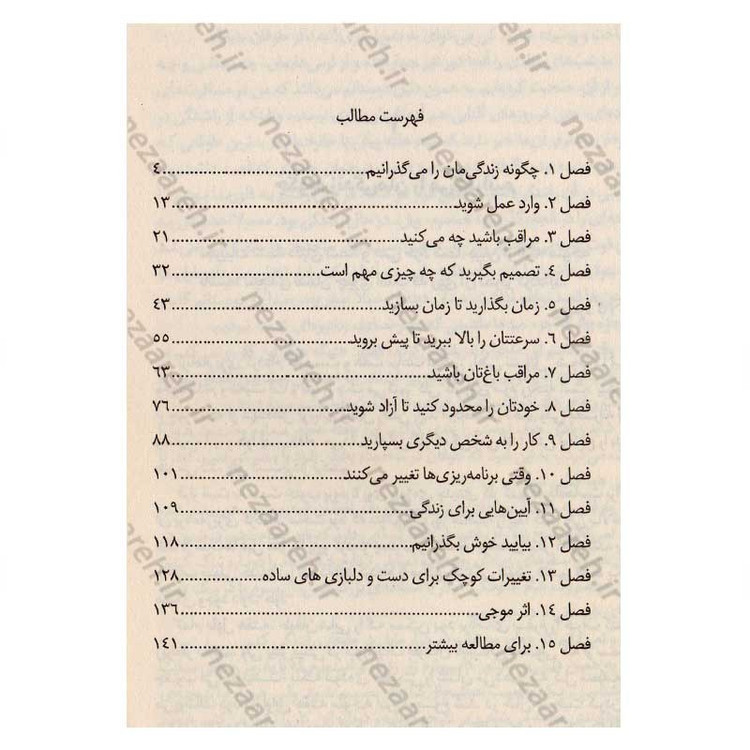 فهرست مطالب
فصل ۱. چگونه زندگی‌مان را می‌گذرانیم..........۴
فصل ۲. وارد عمل شوید..........۱۳
فصل ۳. مراقب باشید چه می‌کنید..........۲۱
فصل ۴. تصمیم بگیرید که چه چیزی مهم است..........۳۲
فصل ۵. زمان بگذارید تا زمان بسازید..........۴۳
فصل ۶. سرعتتان را بالا ببرید تا پیش بروید..........۵۵
فصل ۷. مراقب باغ‌تان باشید..........۶۳
فصل ۸. خودتان را محدود کنید تا آزاد شوید..........۷۶
فصل ۹. کار را به شخص دیگری بسپارید..........۸۸
فصل ۱۰. وقتی برنامه‌ریزی‌ها تغییر می‌کنند..........۱۰۱
فصل ۱۱. آیین‌هایی برای زندگی..........۱۰۹
فصل ۱۲. بیایید خوش بگذرانیم..........۱۱۸
فصل ۱۳. تغییرات کوچک برای دست و دلبازی های ساده..........۱۲۸
فصل ۱۴. اثر موجی..........۱۳۶
فصل ۱۵. برای مطالعه بیشتر..........۱۴۱
nezaareh.ir